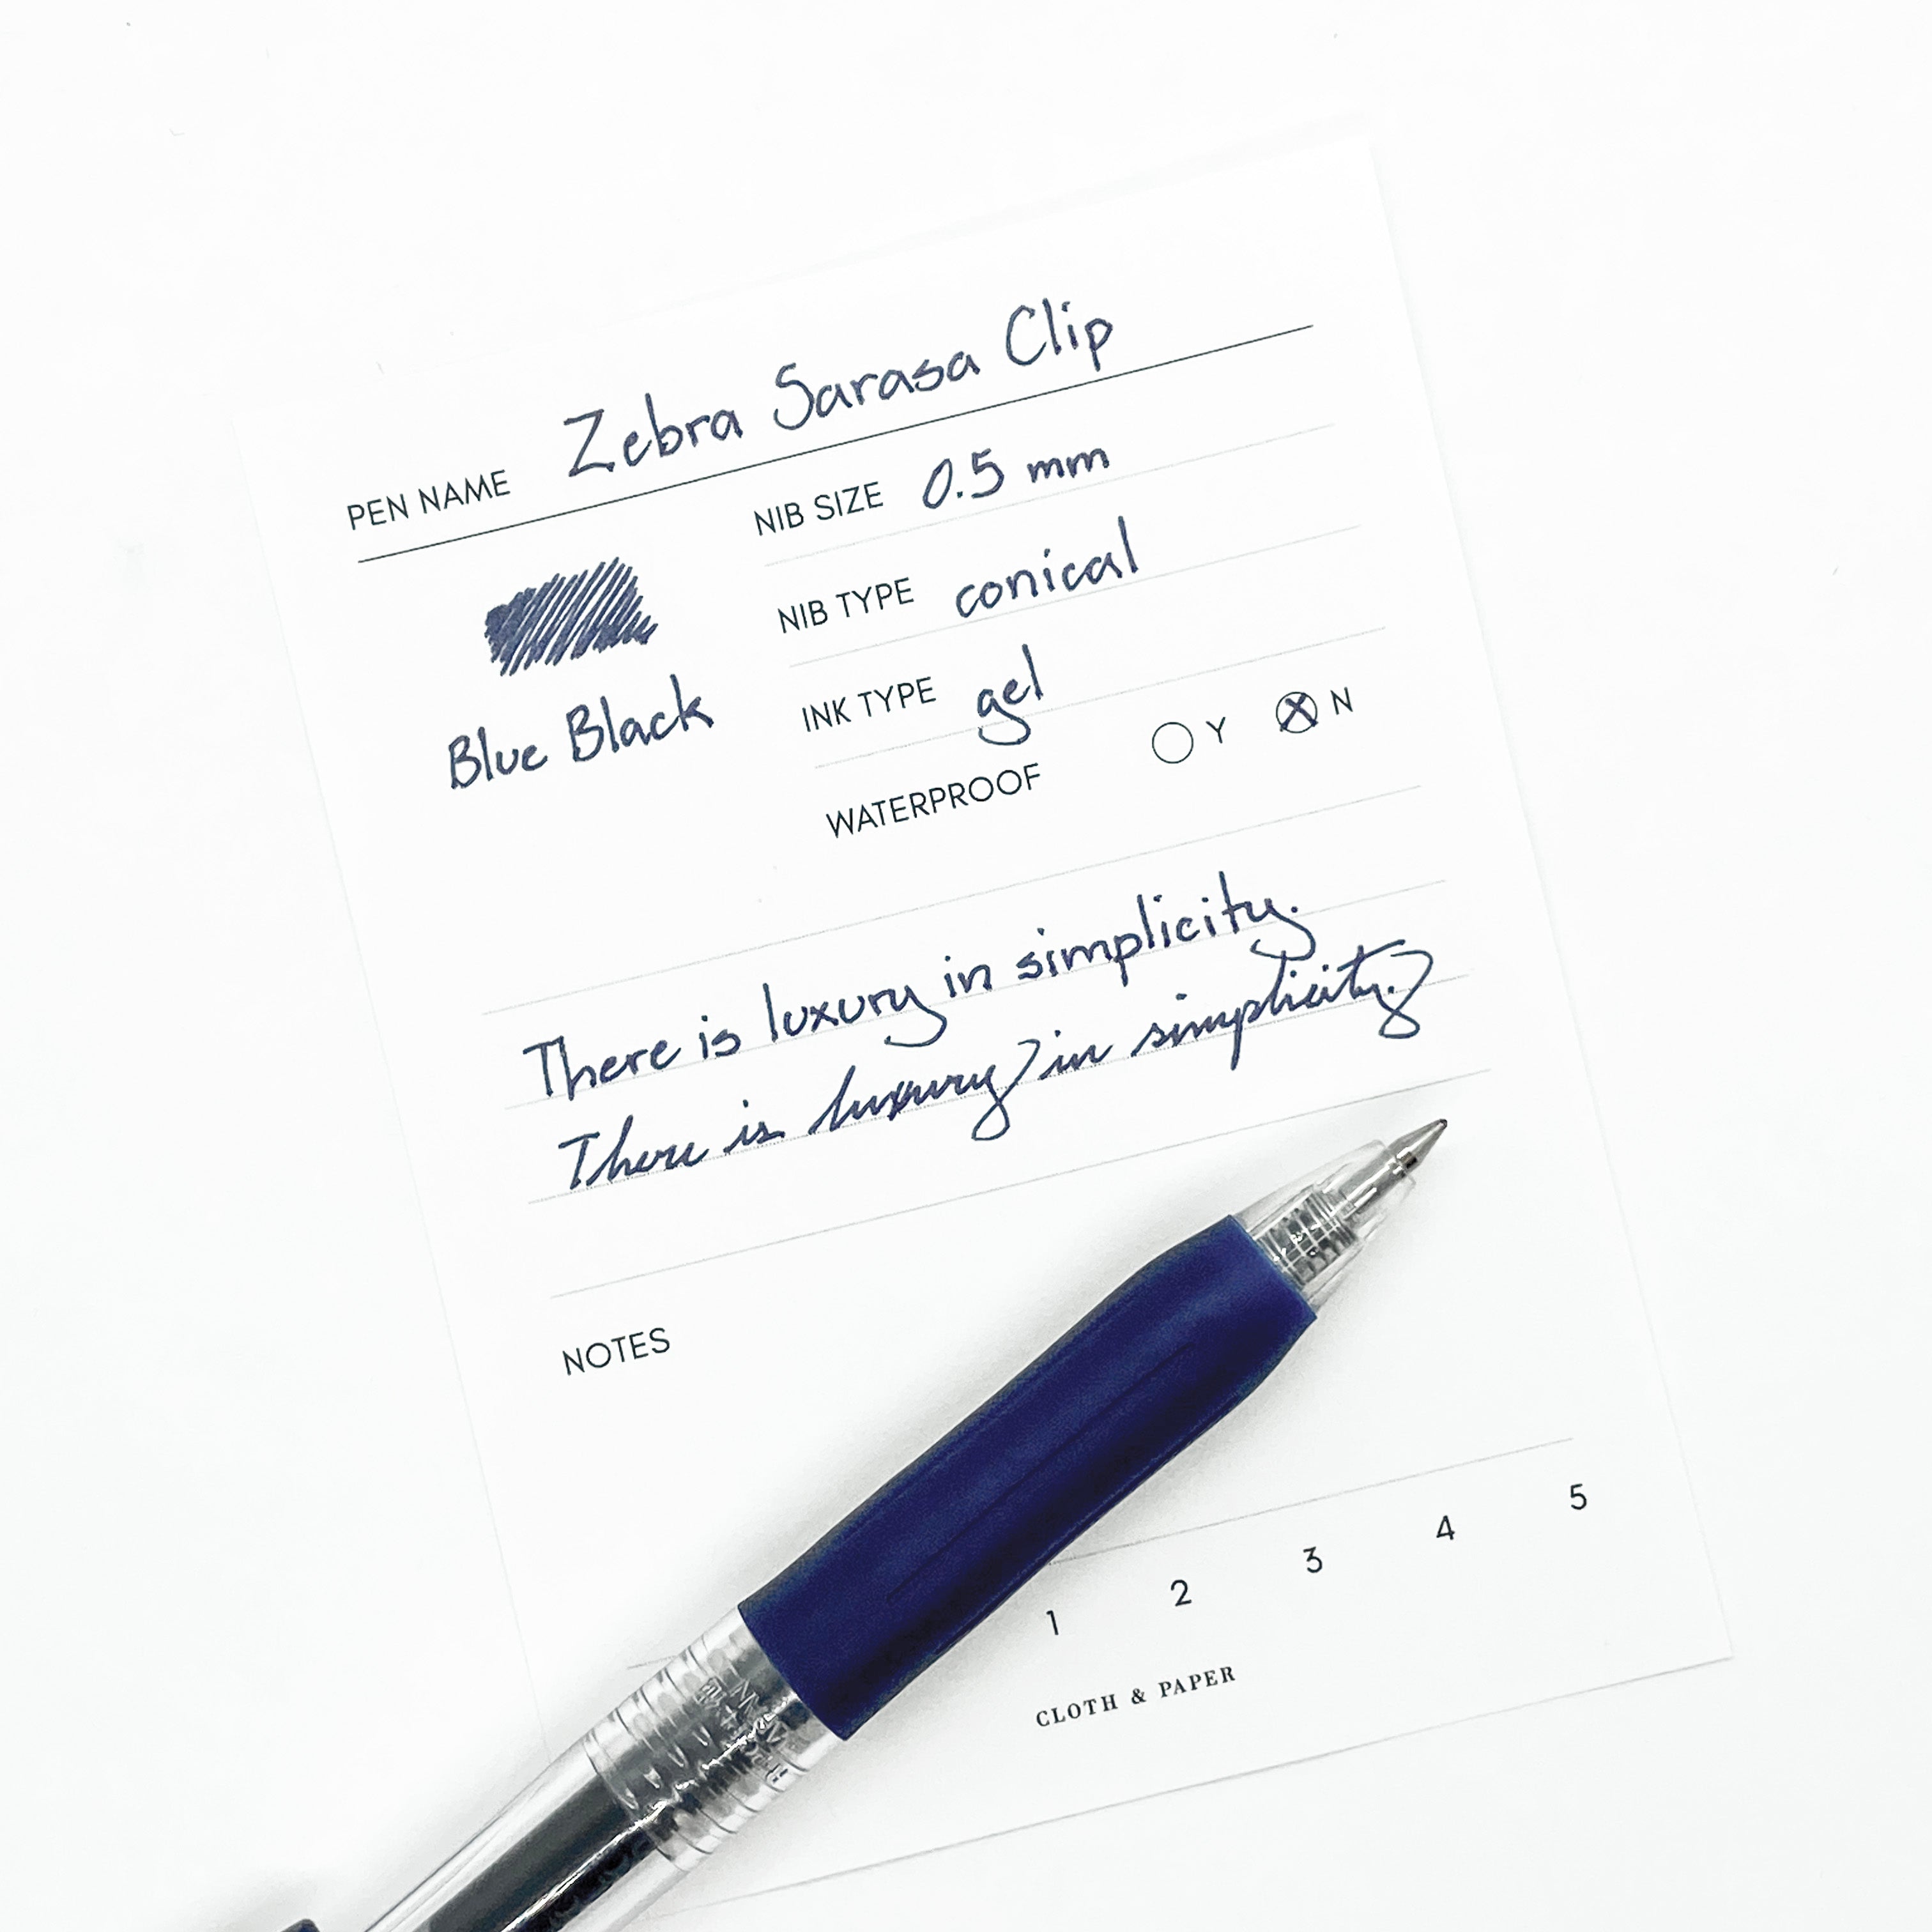 PEN NAME Zebra Sarasa Clip
NIB SIZE 0.5 mm
NIB TYPE conical
INK TYPE gel
Blue Black
WATERPROOF Y N
There is luxury in simplicity.
There is luxury in simplicity.
NOTES
1 2 3 4 5
CLOTH & PAPER